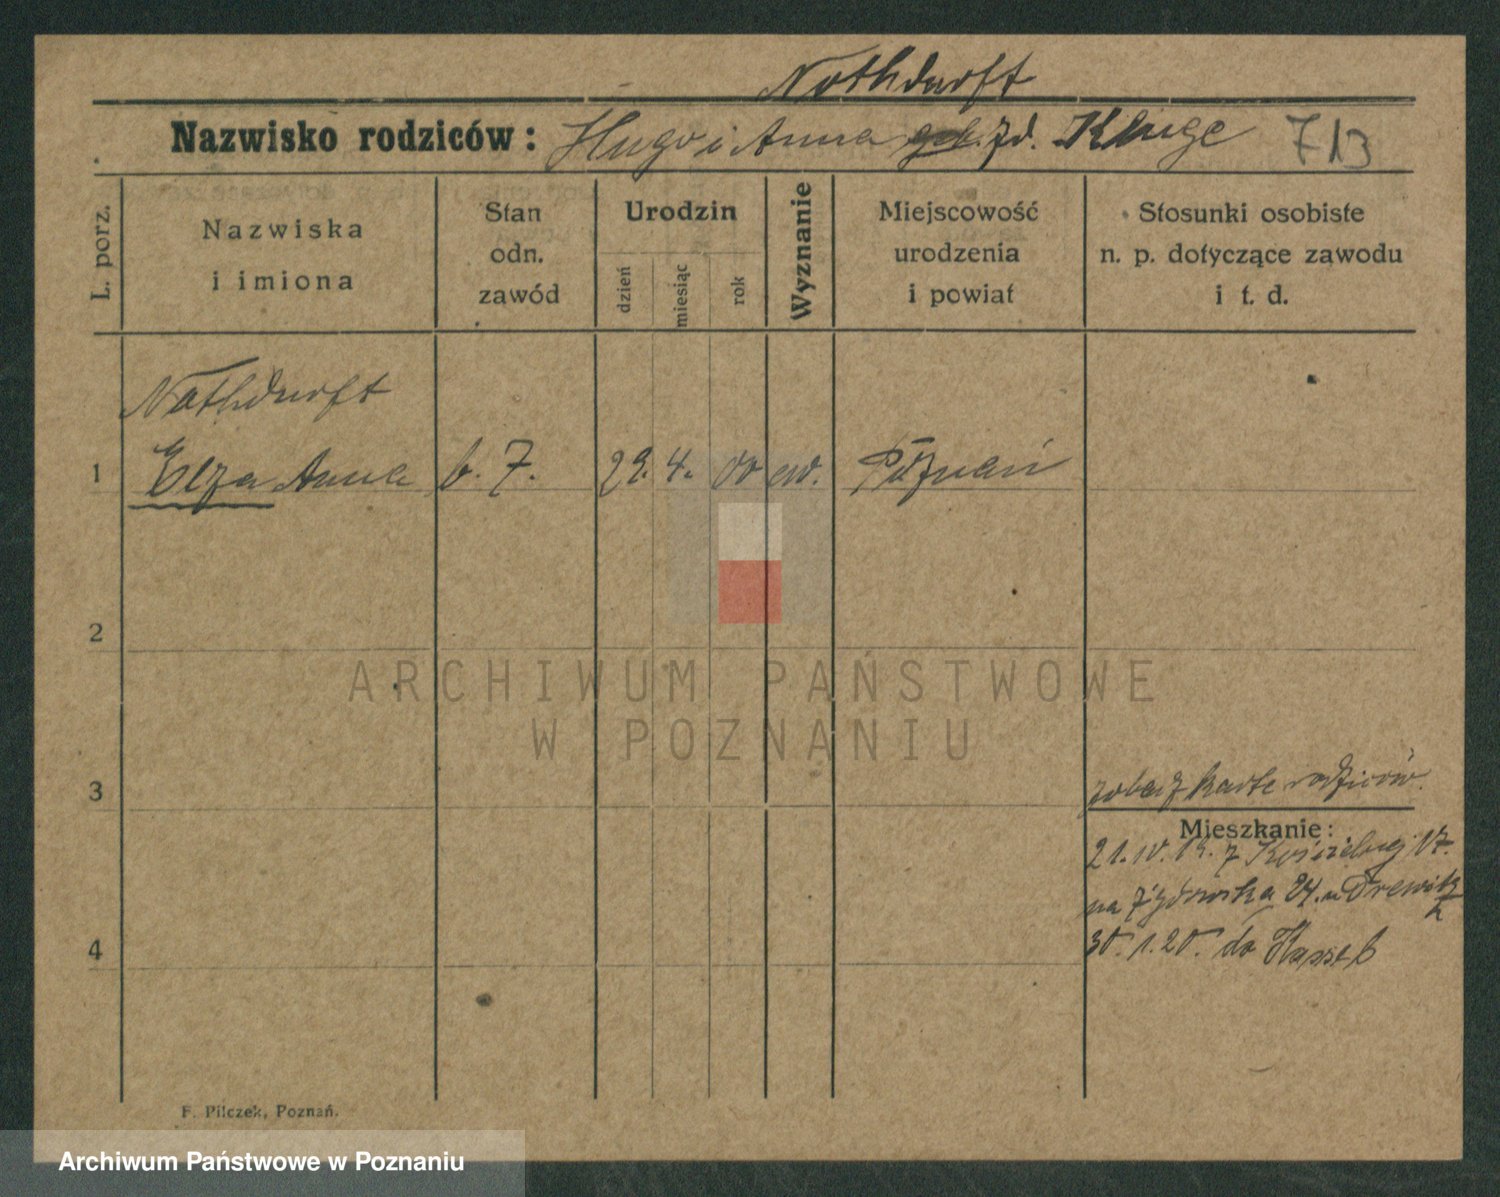 Nothdurft
Nazwisko rodziców: Hugo i Anna zd. Kluge 713
L. porz.
Nazwiska
i imiona
Stan
odn.
zawód
Urodzin
dzień
miesiąc
rok
Wyznanie
Miejscowość
urodzenia
i powiat
Stosunki osobiste
n. p. dotyczące zawodu
i t. d.
Nothdurft
1 Elza Anna b. z. 29. 4. 00 ew. Poznań
2
ARCHIWUM PAŃSTWOWE
W POZNANIU
3
zobacz karte rodziców.
Mieszkanie:
21. 10. 19. z 17.
na Żydowska 24. u Drewitz
4
30. 1. 20. do
F. Pilczek, Poznań.
Archiwum Państwowe w Poznaniu